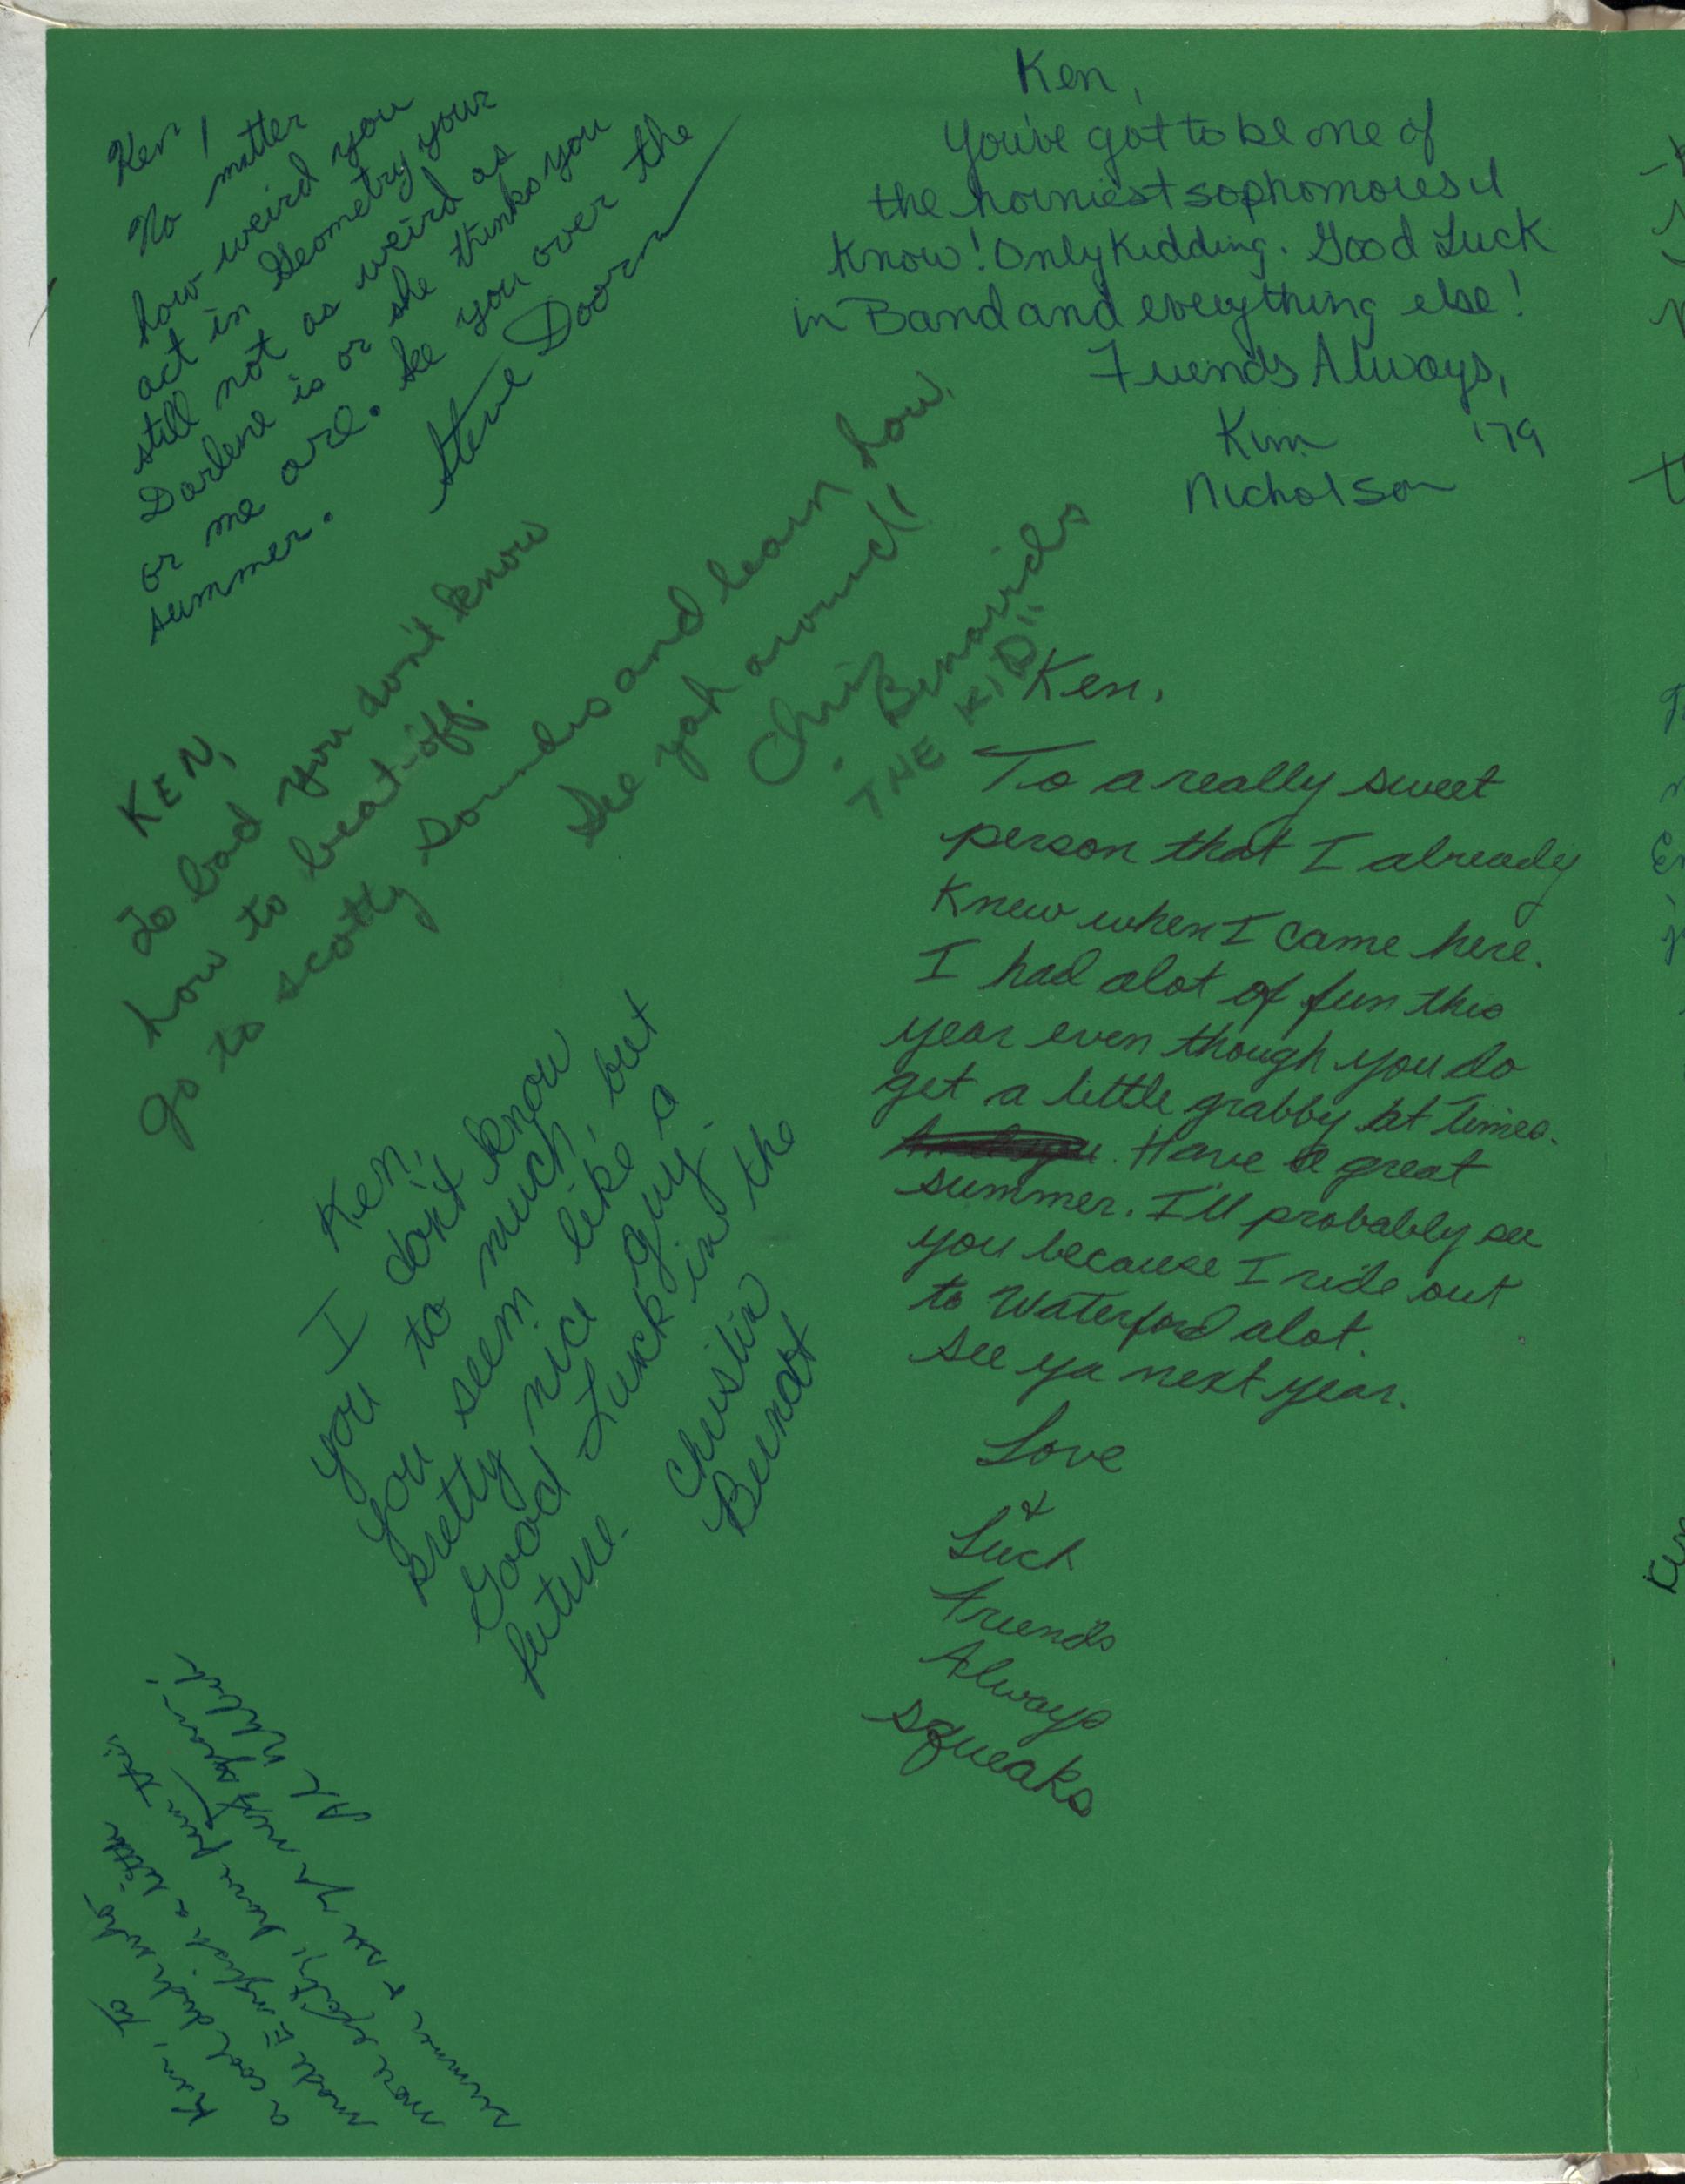 Ken!
No matter
how weird you
act in Geometry your
still not as weird as
Darlene is or she thinks you
or me are. See you over the
summer.
Steve Doorn
Ken,
You've got to be one of
the horniest sophomores I
know! Only Kidding. Good Luck
in Band and everything else!
Friends Always,
Kim '79
Nicholson
KEN,
To bad you don't know
how to beat-off.
go to scotty sounds and learn how.
See yah around!
Chris Benavids
"THE KID"
Ken,
To a really sweet
person that I already
Knew when I came here.
I had alot of fun this
year even though you do
get a little grabby at times.
Have a great
summer. I'll probably see
you because I ride out
to Waterford alot.
See ya next year.
Love
&
Luck
Friends
Always
Squeaks
Ken,
I don't know
you to much, but
you seem like a
pretty nice guy.
Good Luck in the
future.
Christin
Ken, To
a cool dude who
made English a little
more, have fun this
summer & see ya next year
Al